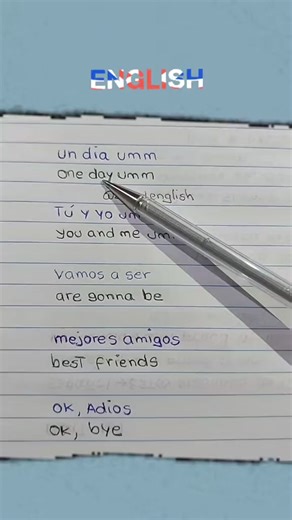 ENGLISH
un dia umm
one day umm
english
Tú y yo um
you and me um
vamos a ser
are gonna be
mejores amigos
best friends
OK, Adios
OK, bye